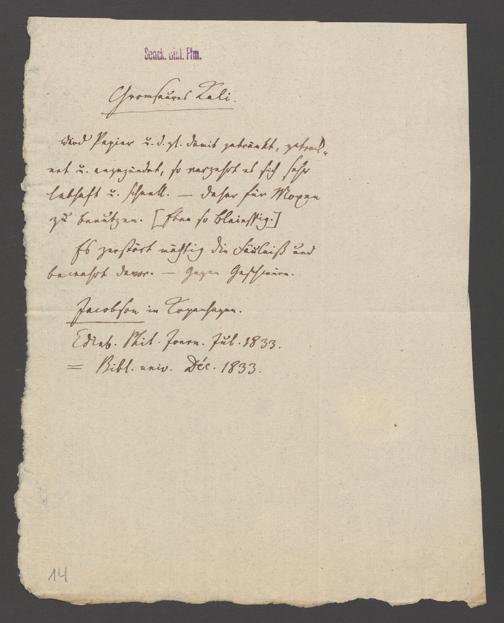 Senck. Bibl. Ffm.
Chromsaures Kali.
Wird Papier u. d. gl. damit getränkt, getrock-
net u. angezündet, so verzehrt es sich sehr
lebhaft u. schnell. — Daher für Moxen
zu benützen. [Eben so Bleiessig.]
Es zerstört mächtig die Fäulniß und
bewahrt davor. — Gegen Geschwüre.
Jacobson in Kopenhagen.
Edinb. Phil. Journ. Jul. 1833.
= Bibl. univ. Déc. 1833.
14